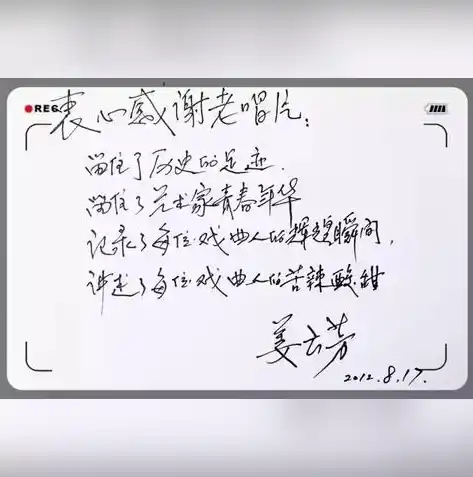 REC
衷心感谢老唱片:
留住了历史的足迹.
留住了艺术家青春年华
记录了每位戏曲人的辉煌瞬间,
讲述了每位戏曲人的苦辣酸甜
姜云芳
2012.8.17.